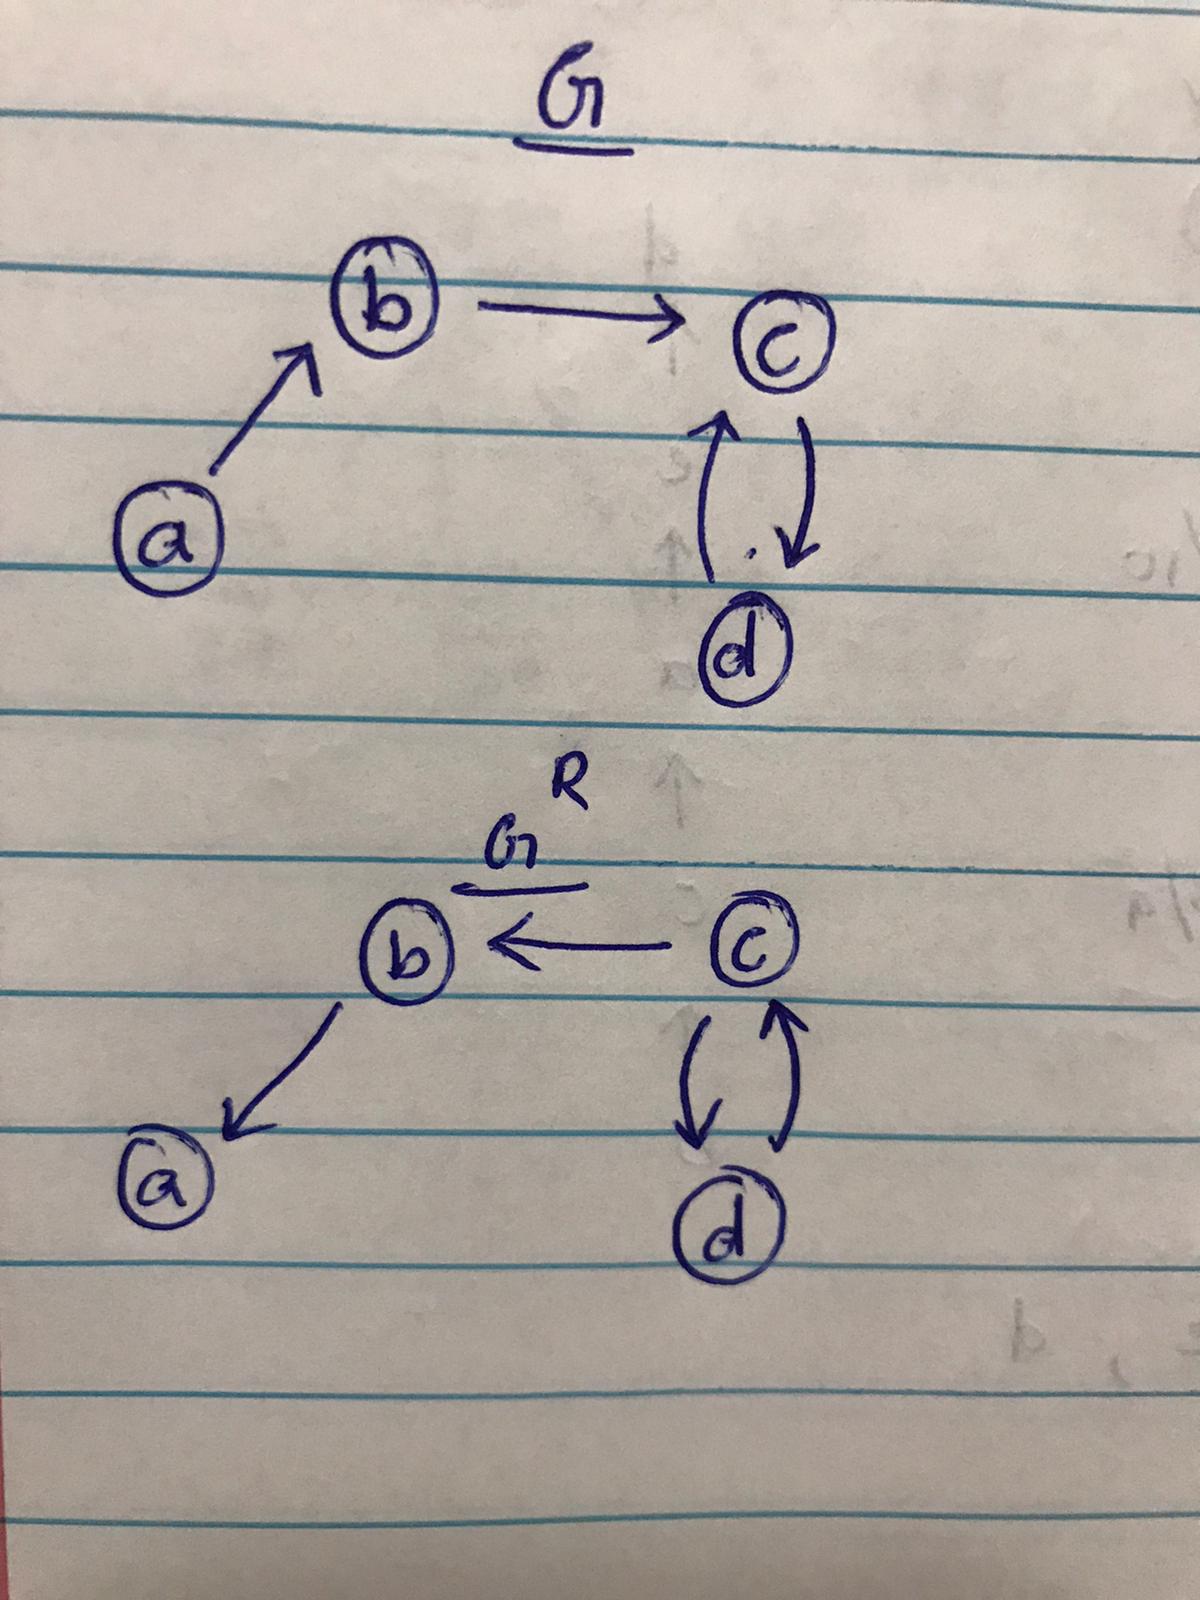 G
b c
a
d
G^R
b c
a
d